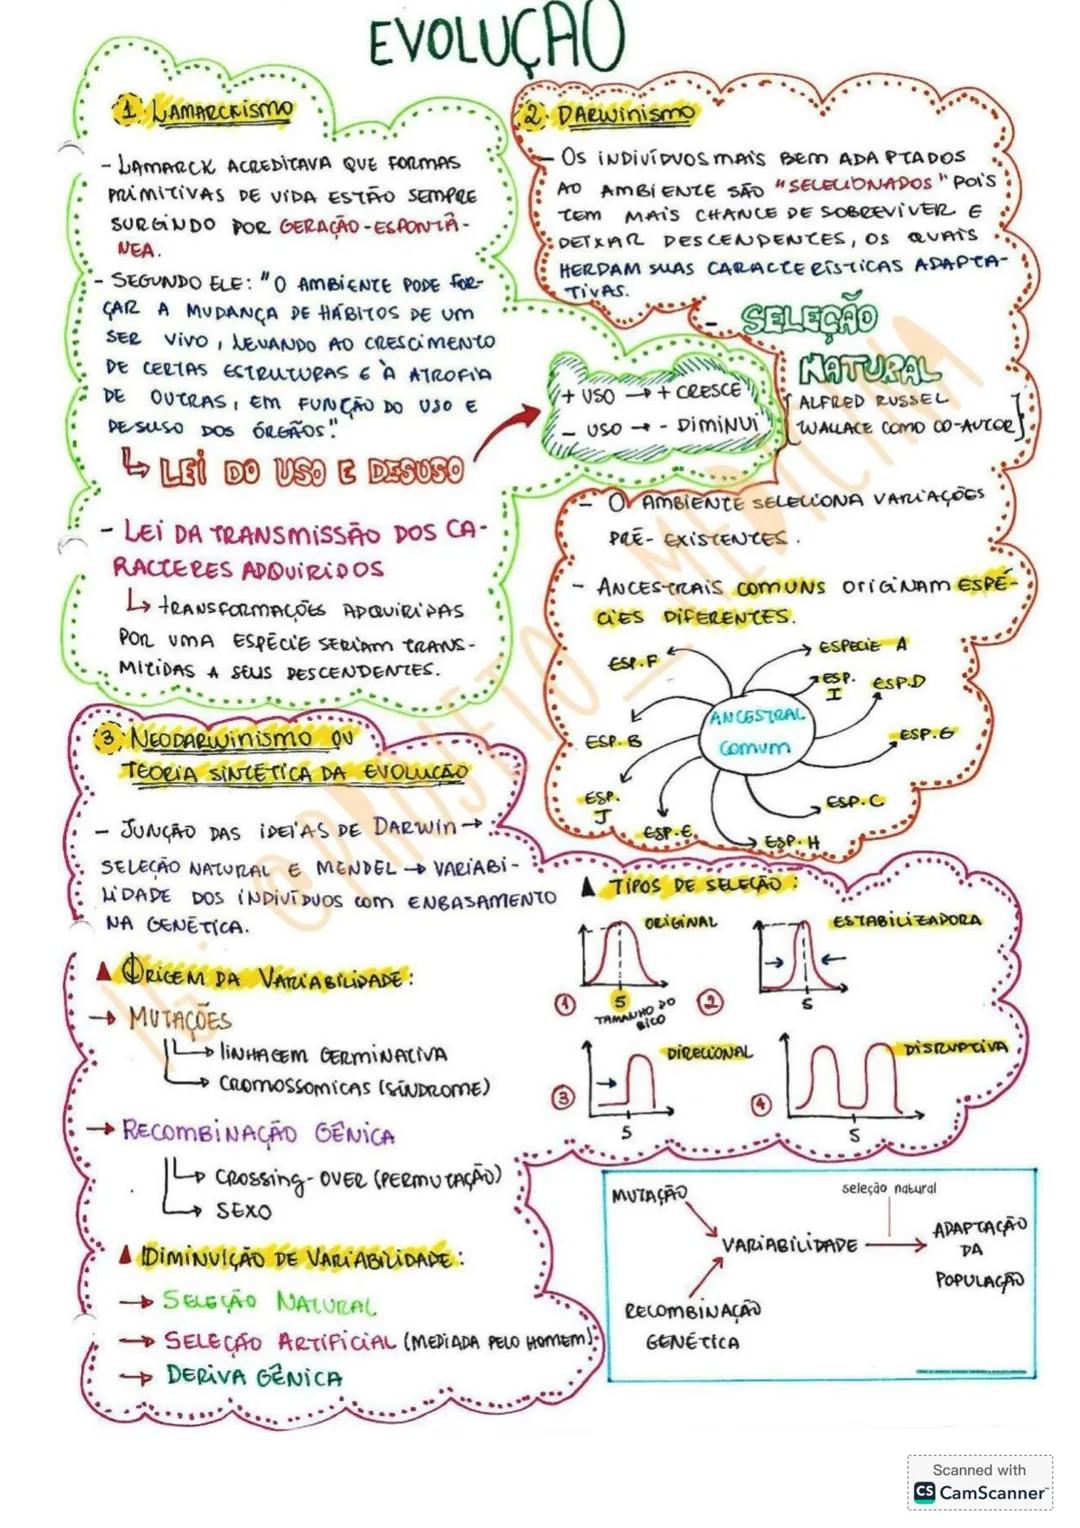 EVOLUÇÃO
1. LAMARCKISMO
- LAMARCK ACREDITAVA QUE FORMAS
PRIMITIVAS DE VIDA ESTÃO SEMPRE
SURGINDO POR GERAÇÃO-ESPONTÂ-
NEA.
- SEGUNDO ELE: "O AMBIENTE PODE FOR-
ÇAR A MUDANÇA DE HÁBITOS DE UM
SER VIVO, LEVANDO AO CRESCIMENTO
DE CERTAS ESTRUTURAS E À ATROFIA
DE OUTRAS, EM FUNÇÃO DO USO E
DESUSO DOS ÓRGÃOS".
LEI DO USO E DESUSO
+ USO → + CRESCE
- USO → - DIMINUI
- LEI DA TRANSMISSÃO DOS CA-
RACTERES ADQUIRIDOS
TRANSFORMAÇÕES ADQUIRIDAS
POR UMA ESPÉCIE SERIAM TRANS-
MITIDAS A SEUS DESCENDENTES.
2. DARWINISMO
- OS INDIVÍDUOS MAIS BEM ADAPTADOS
AO AMBIENTE SÃO "SELECIONADOS" POIS
TEM MAIS CHANCE DE SOBREVIVER E
DEIXAR DESCENDENTES, OS QUAIS
HERDAM SUAS CARACTERÍSTICAS ADAPTA-
TIVAS.
- SELEÇÃO
NATURAL
[ALFRED RUSSEL
WALLACE COMO CO-AUTOR]
- O AMBIENTE SELECIONA VARIAÇÕES
PRÉ-EXISTENTES.
- ANCESTRAIS COMUNS ORIGINAM ESPÉ-
CIES DIFERENTES.
ESP. F
ESPECIE A
ESP.
I
ESP.D
ANCESTRAL
COMUM
ESP. B
ESP.G
ESP.
J
ESP.C
ESP.E
ESP. H
3. NEODARWINISMO OU
TEORIA SINTÉTICA DA EVOLUÇÃO
- JUNÇÃO DAS IDEIAS DE DARWIN →
SELEÇÃO NATURAL E MENDEL → VARIABI-
LIDADE DOS INDIVÍDUOS COM ENBASAMENTO
NA GENÉTICA.
ORIGEM DA VARIABILIDADE:
→ MUTAÇÕES
→ LINHAGEM GERMINATIVA
→ CROMOSSOMICAS (SÍNDROME)
→ RECOMBINAÇÃO GÊNICA
→ CROSSING-OVER (PERMUTAÇÃO)
→ SEXO
DIMINUIÇÃO DE VARIABILIDADE:
→ SELEÇÃO NATURAL
→ SELEÇÃO ARTIFICIAL (MEDIADA PELO HOMEM)
→ DERIVA GÊNICA
TIPOS DE SELEÇÃO:
ORIGINAL
1
5
TAMANHO DO
BICO
ESTABILIZADORA
2
5
DIRECIONAL
3
5
DISRUPTIVA
4
5
MUTAÇÃO
seleção natural
VARIABILIDADE
ADAPTAÇÃO
DA
POPULAÇÃO
RECOMBINAÇÃO
GENÉTICA
IG: @PROJETO_MEDICINA
Scanned with
CS CamScanner